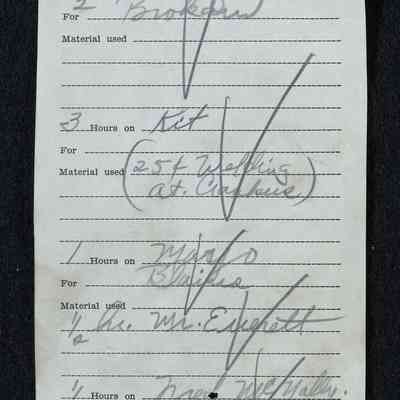 2 Brokaw
For
Material used
3 Hours on Kit
For
Material used (25¢ Welding
at. Clarkus)
1 Hours on Mario
For
Material used
1/2 hr. Mr. Everett
1/ Hours on Fred McNally.